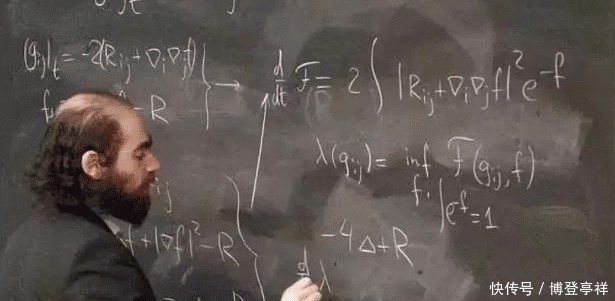 (g_ij)_t = -2(R_ij + ∇_i ∇_j f)
- R
→ d/dt F = 2 ∫ |R_ij + ∇_i ∇_j f|² e^-f
λ(g_ij) = inf F(g_ij, f)
f, ∫ e^-f = 1
ij
+ |∇f|² - R
-4Δ + R
d/ λ
快传号 / 博登亭祥